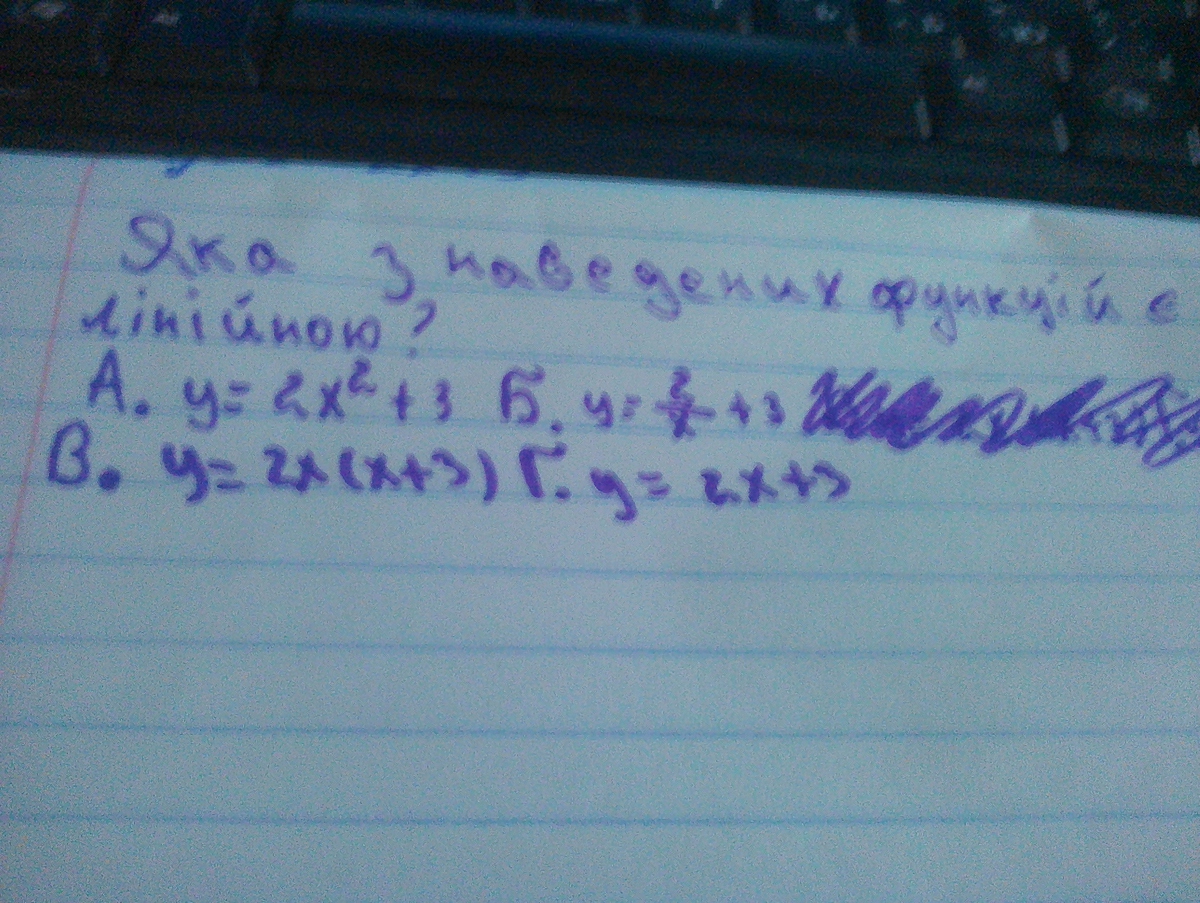 Яка з наведених функцій є
лінійною?
А. y = 2x² + 3 Б. y = 2/x + 3
В. y = 2x(x+3) Г. y = 2x+3